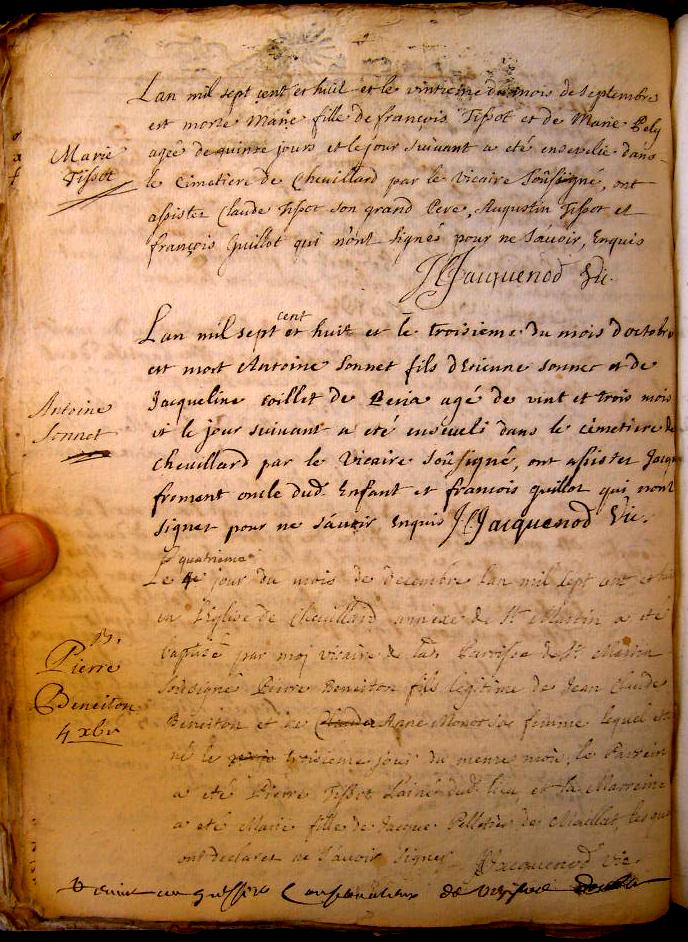 Lan mil sept cent et huit et le vintieme du mois de Septembre
est morte Marie fille de françois Tissot et de Marie
Marie
Tissot
agée de quinze jours et le jour suivant a été ensevelie dans
le Cimetiere de Chevillard par le Vicaire Soussigné, ont
assistez Claude Tissot son grand Pere, Augustin Tissot et
françois Guillot qui n'ont signés pour ne Sçavoir, Enquis
J Jacquenod Vic.
Lan mil sept cent et huit et le troisieme du mois d'octobre
est mort Antoine Sonnet fils d'Etienne Sonnet et de
Antoine
Sonnet
Jacqueline de agé de vint et trois mois
et le jour suivant a été enseveli dans le cémetiere de
Chevillard par le Vicaire Soussigné, ont assistez
froment oncle dud. Enfant et francois Guillot qui n'ont
signer pour ne sçavoir Enquis J Jacquenod Vic.
quatrieme
Le jour du mois de decembre lan mil sept cent et huit
en l'Eglise de Chevillard annexe de St Martin a été
B.
Pierre
Beneiton
4 xbr
baptisé par moi vicaire de lad. Parroisse de St Martin
soussigné Pierre Beneiton fils légitime de Jean Claude
Beneiton et de Anne Monot sa femme lequel est
né le troisieme jour du meme mois, le Parrein
a été Pierre Tissot L'ainé dud. lieu, et la Marreine
a été Marie fille de Jacque Pelletier de Maillat, lesquels
ont declarez ne Sçavoir Signer Jacquenod Vic.